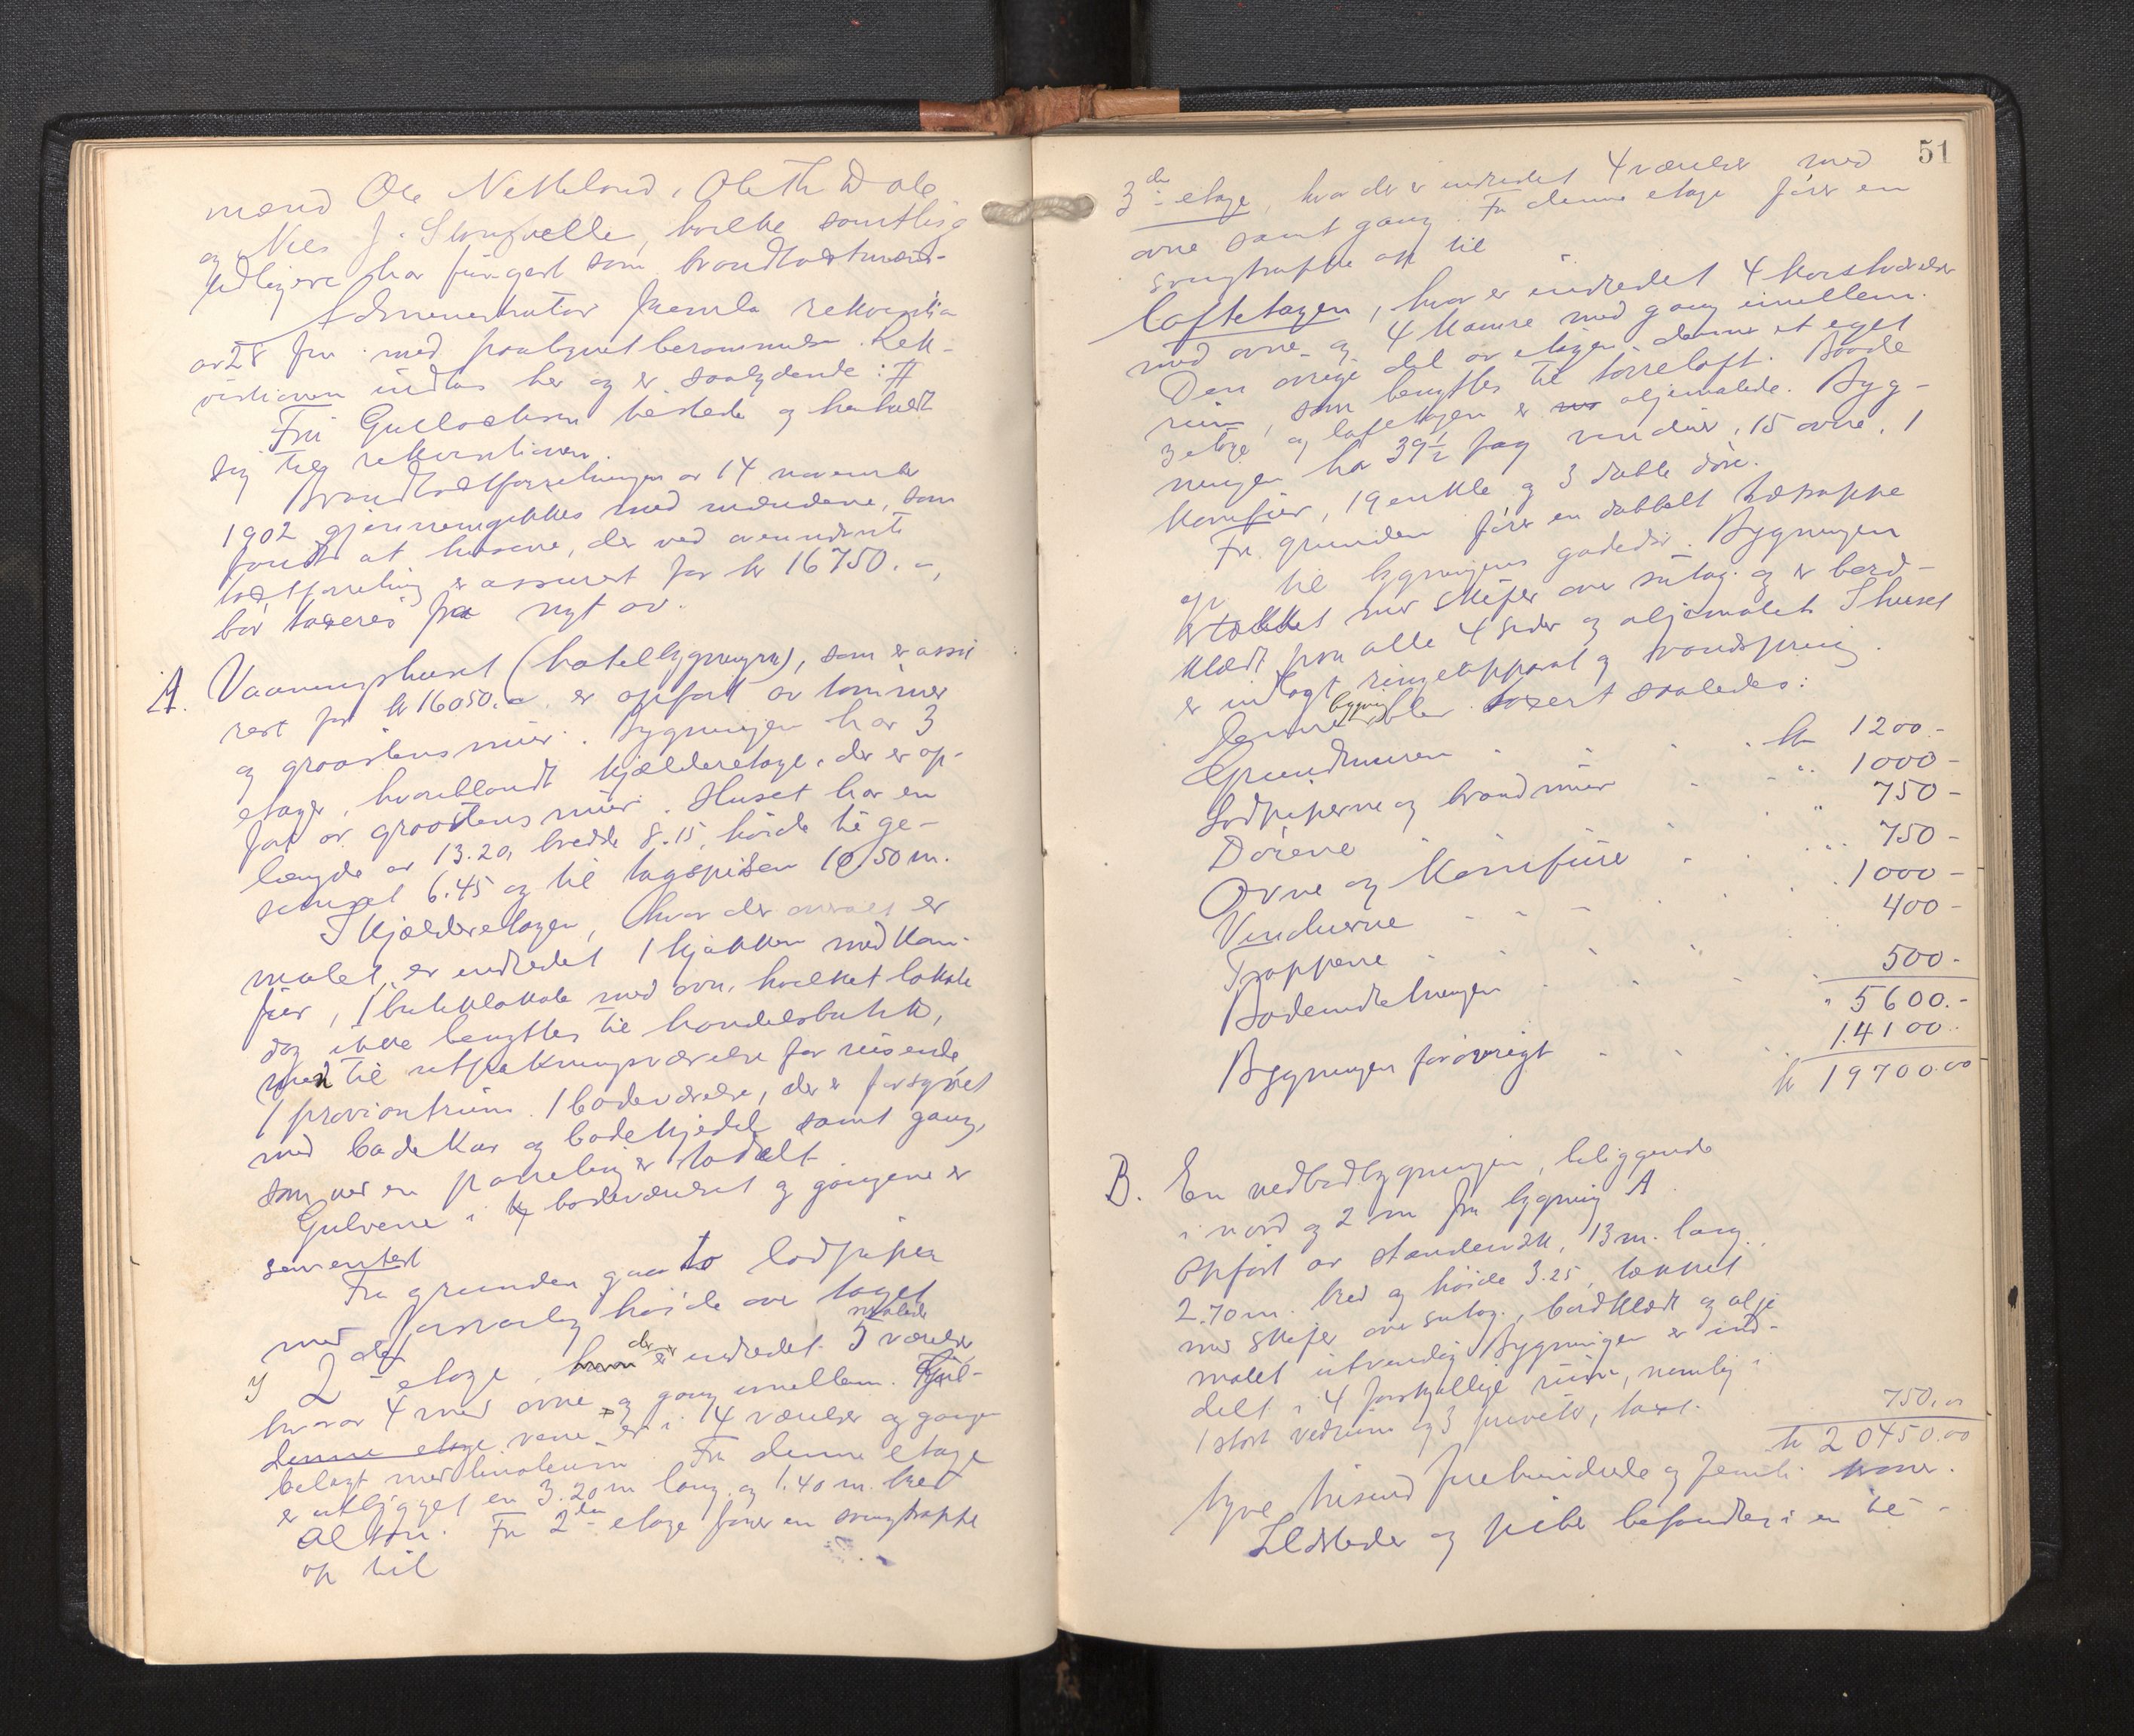 mænd Ole Netteland, Ole Th Dale
og Nils J. hvilke samtlige
tidligere har fungert som brandtakstmænd.
Administrator fremla rekvisition
av 28 fm med paategnet berammelse. Rek-
visitionen indtas her og er saalydende: #
Fru tilstede og henholdt
sig til rekvisitionen.
Brandtakstforretningen av 14 november
1902 gjennemgikkes med mændene, som
fandt at husene, der ved
takstforretning er assurert for kr 16750.-,
bør taxeres fra nyt av.
A. Vaaningshuset (hotelbygningen), som er assu
rert for kr 16050.- er opført av tømmer
og graastensmur. Bygningen har 3
etager, hvoriblandt kjælderetage, der er op-
ført av graastens mur. Huset har en
længde av 13.20, bredde 8.15, høide til ge-
simset 6.45 og til tagspidsen 10,50 m.
I kjælderetagen, hvor der overalt er
malet, er indredet 1 kjøkken med kom-
fur, 1 butiklokale med ovn, hvilket lokale
dog ikke benyttes til handelsbutik,
men til utpakningsværelse for reisende
1 proviantrum. 1 badeværelse, der er forsynet
med badekar og badekjedel samt gang,
som ved en paneling er todelt
Gulvene i badeværelset og gangene er
sementert
Fra grunden gaar to lodpiper
med forsvarlig høide over taget
I 2den etage, der er indredet 5 malede værelser
hvorav 4 med ovne og gang imellem. Gul-
denne etage vene er i 4 værelser og gangen
belagt med linoleum. Fra denne etage
er utbygget en 3.20 m lang og 1.40 m. bred
altan. Fra 2den etage fører en svingtrappe
op til
51
3de etage, hvor der er indredet 4 værelser med
ovne samt gang. Fra denne etage fører en
svingtrappe op til
loftetagen, hvor er indredet 4 kvistværelser
med ovne og 4 kamre med gang imellem.
Den øvrige del av etagen danner et eget
rum, som benyttes til tørreloft. Baade
3 etage og loftetagen er oljemalede. Byg-
ningen har 39½ fag vinduer, 15 ovne, 1
komfur, 19 enkle og 3 doble døre.
Fra grunden fører en dobbelt trætrappe
op til bygningens gadedør. Bygningen
er tækket med skifer over sutag og er bord-
klædt paa alle 4 sider og oljemalet. I huset
er indlagt ringeapparat og vandspring.
Denne bygning blev taxert saaledes:
Grundmuren kr 1200.-
Lodpiperne og brandmur " 1000-
Dørene " 750-
Ovne og Komfure " 750-
Vinduerne 1000-
Trapperne 400-
Badeindretningen 500.-
" 5600.-
Bygningen forøvrigt 14100..
kr 19700.00
B. En vedbodbygningen, beliggende
i nord og 2 m fra bygning A
opført av stenderverk, 13 m. lang,
2.70 m. bred og høide 3.25, tækket
med skifer over sutag, bordklædt og olje
malet utvendig. Bygningen er ind-
delt i 4 forskjellige rum, nemlig i
1 stort vedrum og 3 priveter, taxt. 750,00
kr 20450.00
tyve tusind firehundrede og femti kroner.
Ildsteder og piber befandtes i en be-